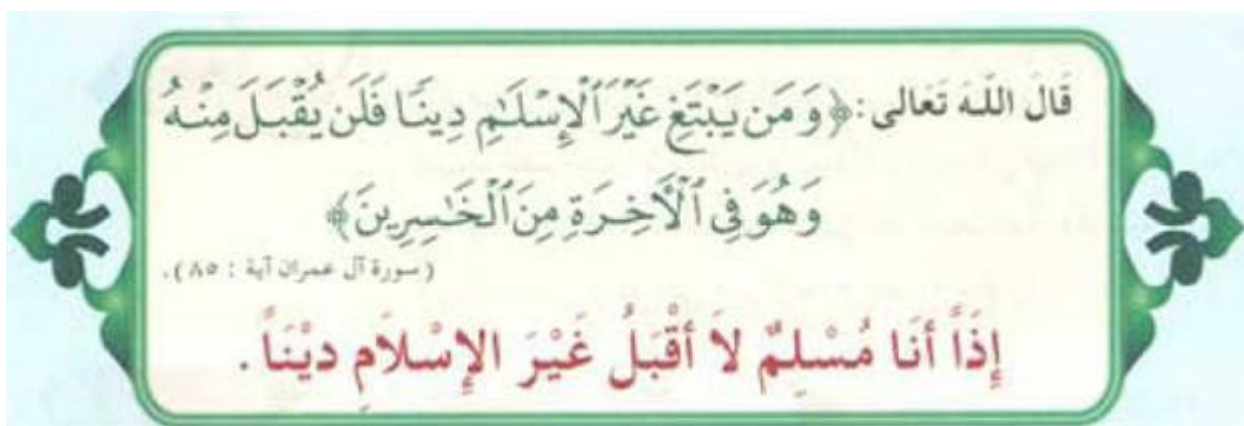 قَالَ اللَّهُ تَعَالى : ﴿وَمَن يَبْتَغِ غَيْرَ ٱلْإِسْلَٰمِ دِينًا فَلَن يُقْبَلَ مِنْهُ
وَهُوَ فِي ٱلْأَخِرَةِ مِنَ ٱلْخَٰسِرِينَ﴾
(سورة آل عمران آية : ٨٥).
إِذَاً أَنَا مُسْلِمٌ لاَ أَقْبَلُ غَيْرَ الإِسْلاَمِ دِيْنَاً .